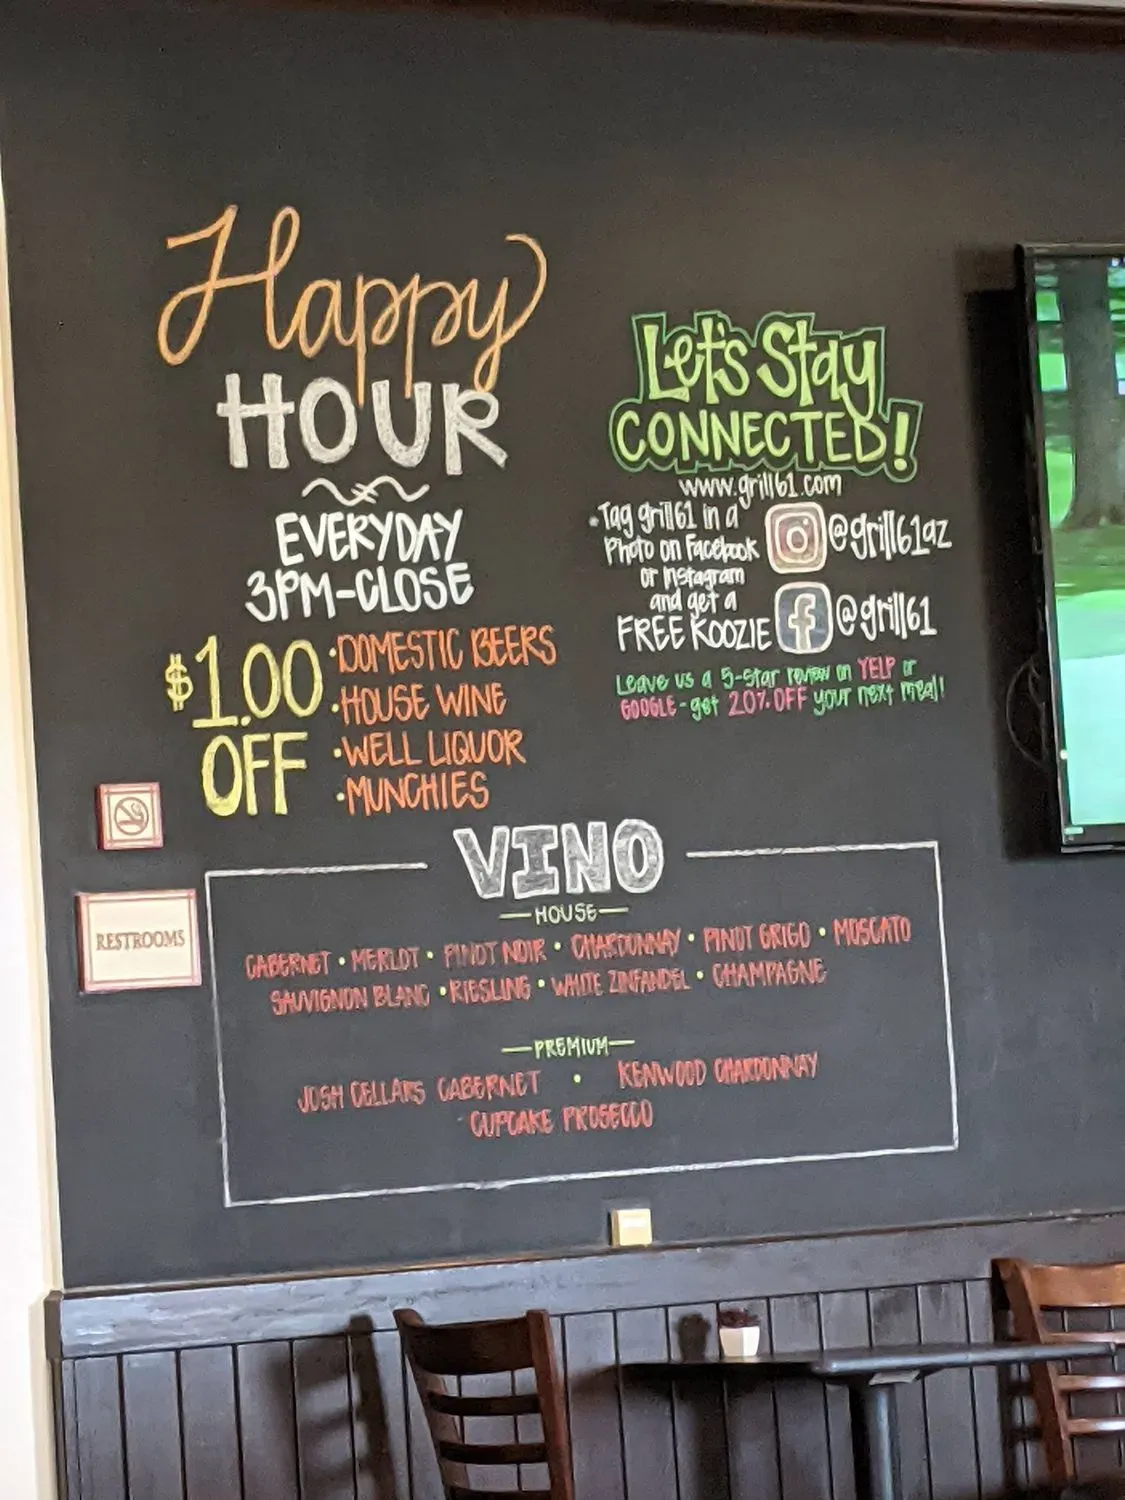 Happy
HOUR
EVERYDAY
3PM-CLOSE
$1.00
OFF
• DOMESTIC BEERS
• HOUSE WINE
• WELL LIQUOR
• MUNCHIES
Let's Stay
CONNECTED!
www.grill61.com
• Tag grill61 in a
Photo on Facebook
or Instagram
and get a
FREE KOOZIE
@grill61az
@grill61
Leave us a 5-Star review on YELP or
GOOGLE - get 20% OFF your next meal!
RESTROOMS
VINO
—HOUSE—
CABERNET • MERLOT • PINOT NOIR • CHARDONNAY • PINOT GRIGO • MOSCATO
SAUVIGNON BLANC • RIESLING • WHITE ZINFANDEL • CHAMPAGNE
—PREMIUM—
JOSH CELLARS CABERNET • KENWOOD CHARDONNAY
CUPCAKE PROSECCO